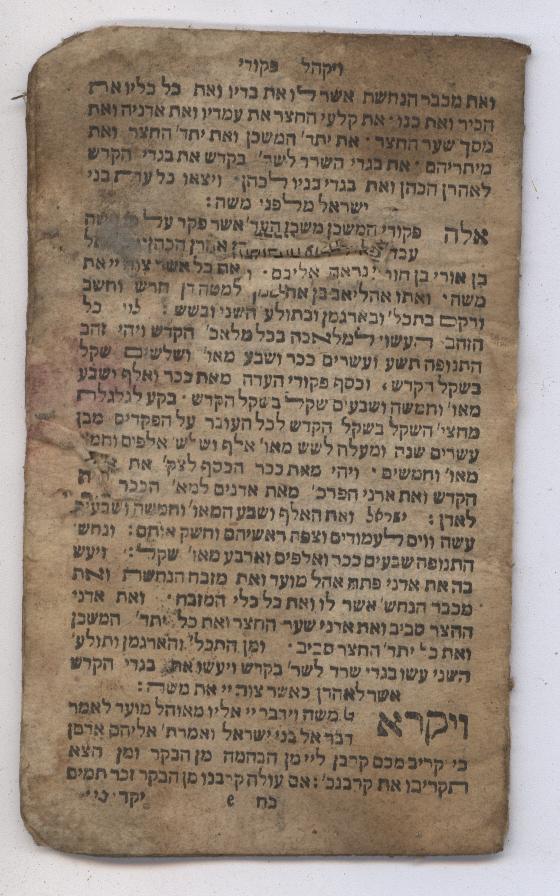 ויקהל פקודי
ואת מכבר הנחשת אשר לו ואת בדיו ואת כל כליו את
הכיר ואת כנו · את קלעי החצר את עמדיו ואת אדניה ואת
מסך שער החצר · את יתר' המשכן ואת יתד' החצר ואת
מיתריהם · את בגדי השרד לשר' בקדש את בגדי הקדש
לאהרן הכהן ואת בגדי בניו לכהן · ויצאו כל עדת בני
ישראל מלפני משה :
אלה פקודי המשכן משכן העד' אשר פקד על
עבד אהרן הכהן
בן אורי בן חור אליכם · את כל אשר צוה יי את
משה · ואתו אהליאב בן למטה דן חרש וחשב
ורקם בתכל' ובארגמן ובתולע השני ובשש : כל
הזהב העשוי למלאכה בכל מלאכ' הקדש ויהי זהב
התנופה תשע ועשרים ככר ושבע מאו' ושלשים שקל
בשקל הקדש · וכסף פקודי העדה מאת ככר ואלף ושבע
מאו' וחמשה ושבעים שקל בשקל הקדש · בקע לגלגלת
מחצי' השקל בשקל הקדש לכל העובר על הפקדים מבן
עשרים שנה ומעלה לשש מאו' אלף ושלש' אלפים וחמ'
מאו' וחמשים · ויהי מאת ככר הכסף לצק' את
הקדש ואת אדני הפרכ' מאת אדנים למא' הככר
לאדן : ישראל ואת האלף ושבע המאו' וחמשה ושבעים
עשה ווים לעמודים וצפה ראשיהם וחשק אותם : ונחש'
התנופה שבעים ככר ואלפים וארבע מאו' שקל : ויעש
בה את אדני פתח אהל מועד ואת מזבח הנחשת ואת
מכבר הנחש' אשר לו ואת כל כלי המזבח · ואת אדני
החצר סביב ואת אדני שער החצר ואת כל יתד' המשכן
ואת כל יתד' החצר סביב · ומן התכל' והארגמן ותולע'
השני עשו בגדי שרד לשר' בקדש ויעשו את בגדי הקדש
אשר לאהרן כאשר צוה יי את משה :
ויקרא משה וידבר יי אליו מאוהל מועד לאמר
דבר אל בני ישראל ואמרת' אליהם אדם
כי יקריב מכם קרבן ליי מן הבהמה מן הבקר ומן הצא
תקריבו את קרבנכ' : אם עולה קרבנו מן הבקר זכר תמים
כח e